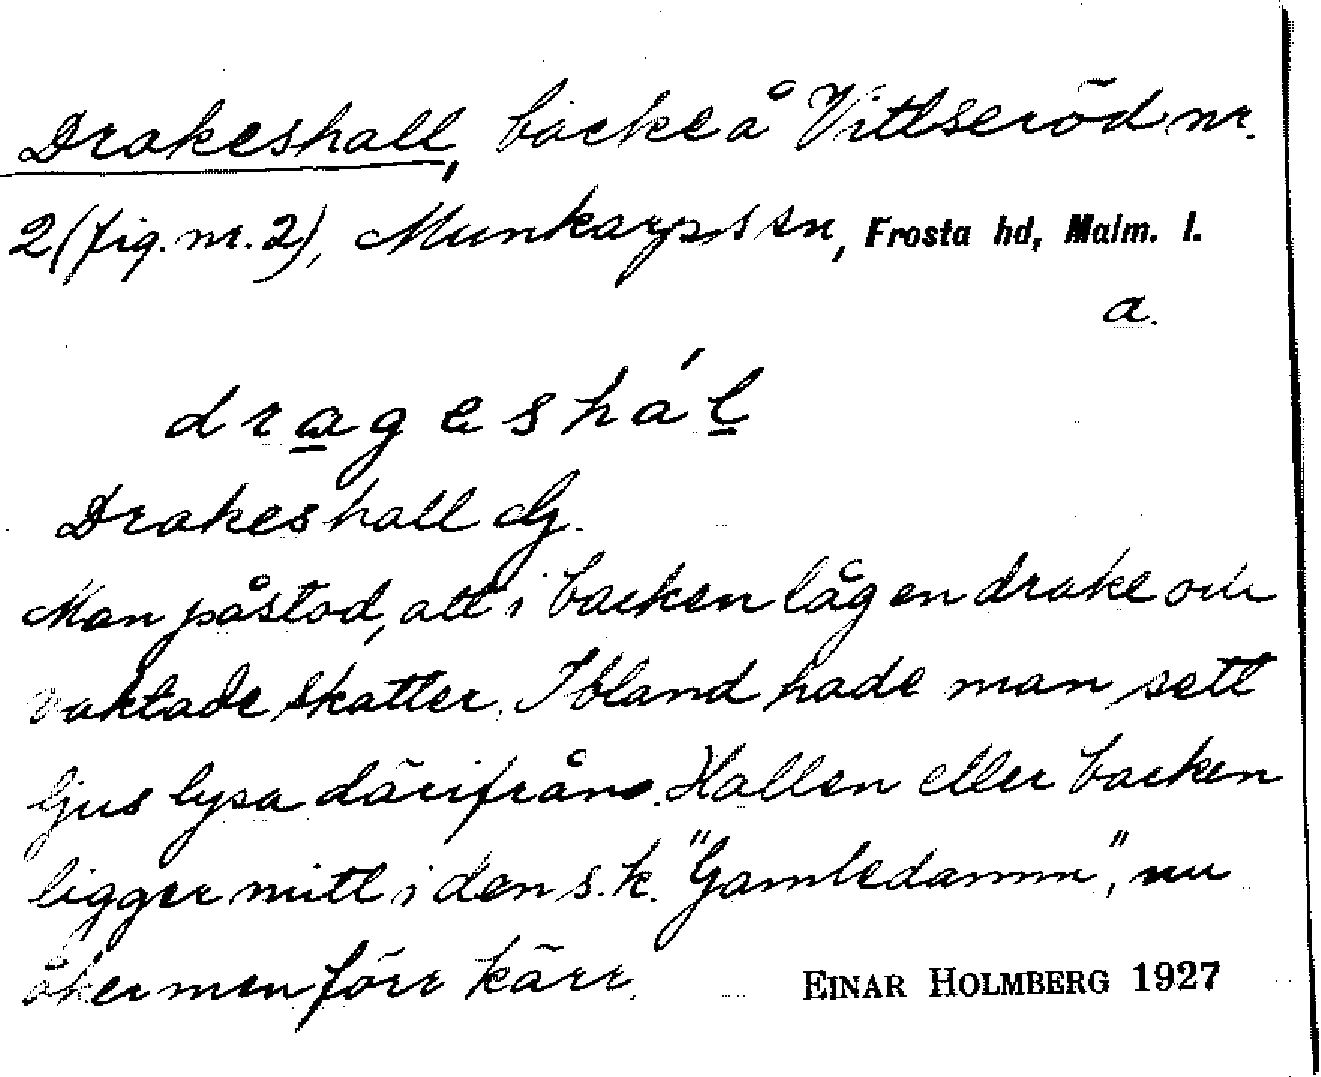 Drakeshall, backe å Vittseröd nr.
2 (fig. nr. 2), Munkarps sn, Frosta hd, Malm. l.
a.
drageshál
Drakeshall dg.
Man påstod, att i backen låg en drake och
vaktade skatter. Ibland hade man sett
ljus lysa därifrån. Hallen eller backen
ligger mitt i den s.k. "Gamledamm", nu
åker men förr kärr.
EINAR HOLMBERG 1927